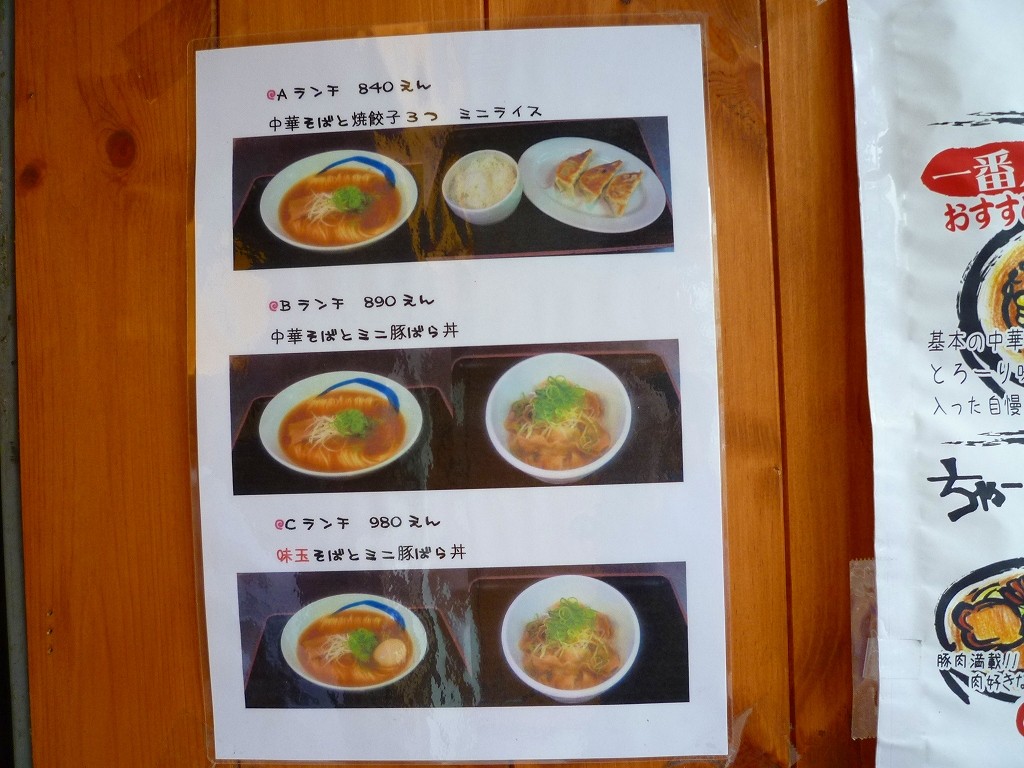 @Aランチ 840えん
中華そばと焼餃子3つ ミニライス
@Bランチ 890えん
中華そばとミニ豚ばら丼
@Cランチ 980えん
味玉そばとミニ豚ばら丼
一番
おすす
基本の中華
とろーり
入った自慢
ちゃー
豚肉満載!!
肉好きな